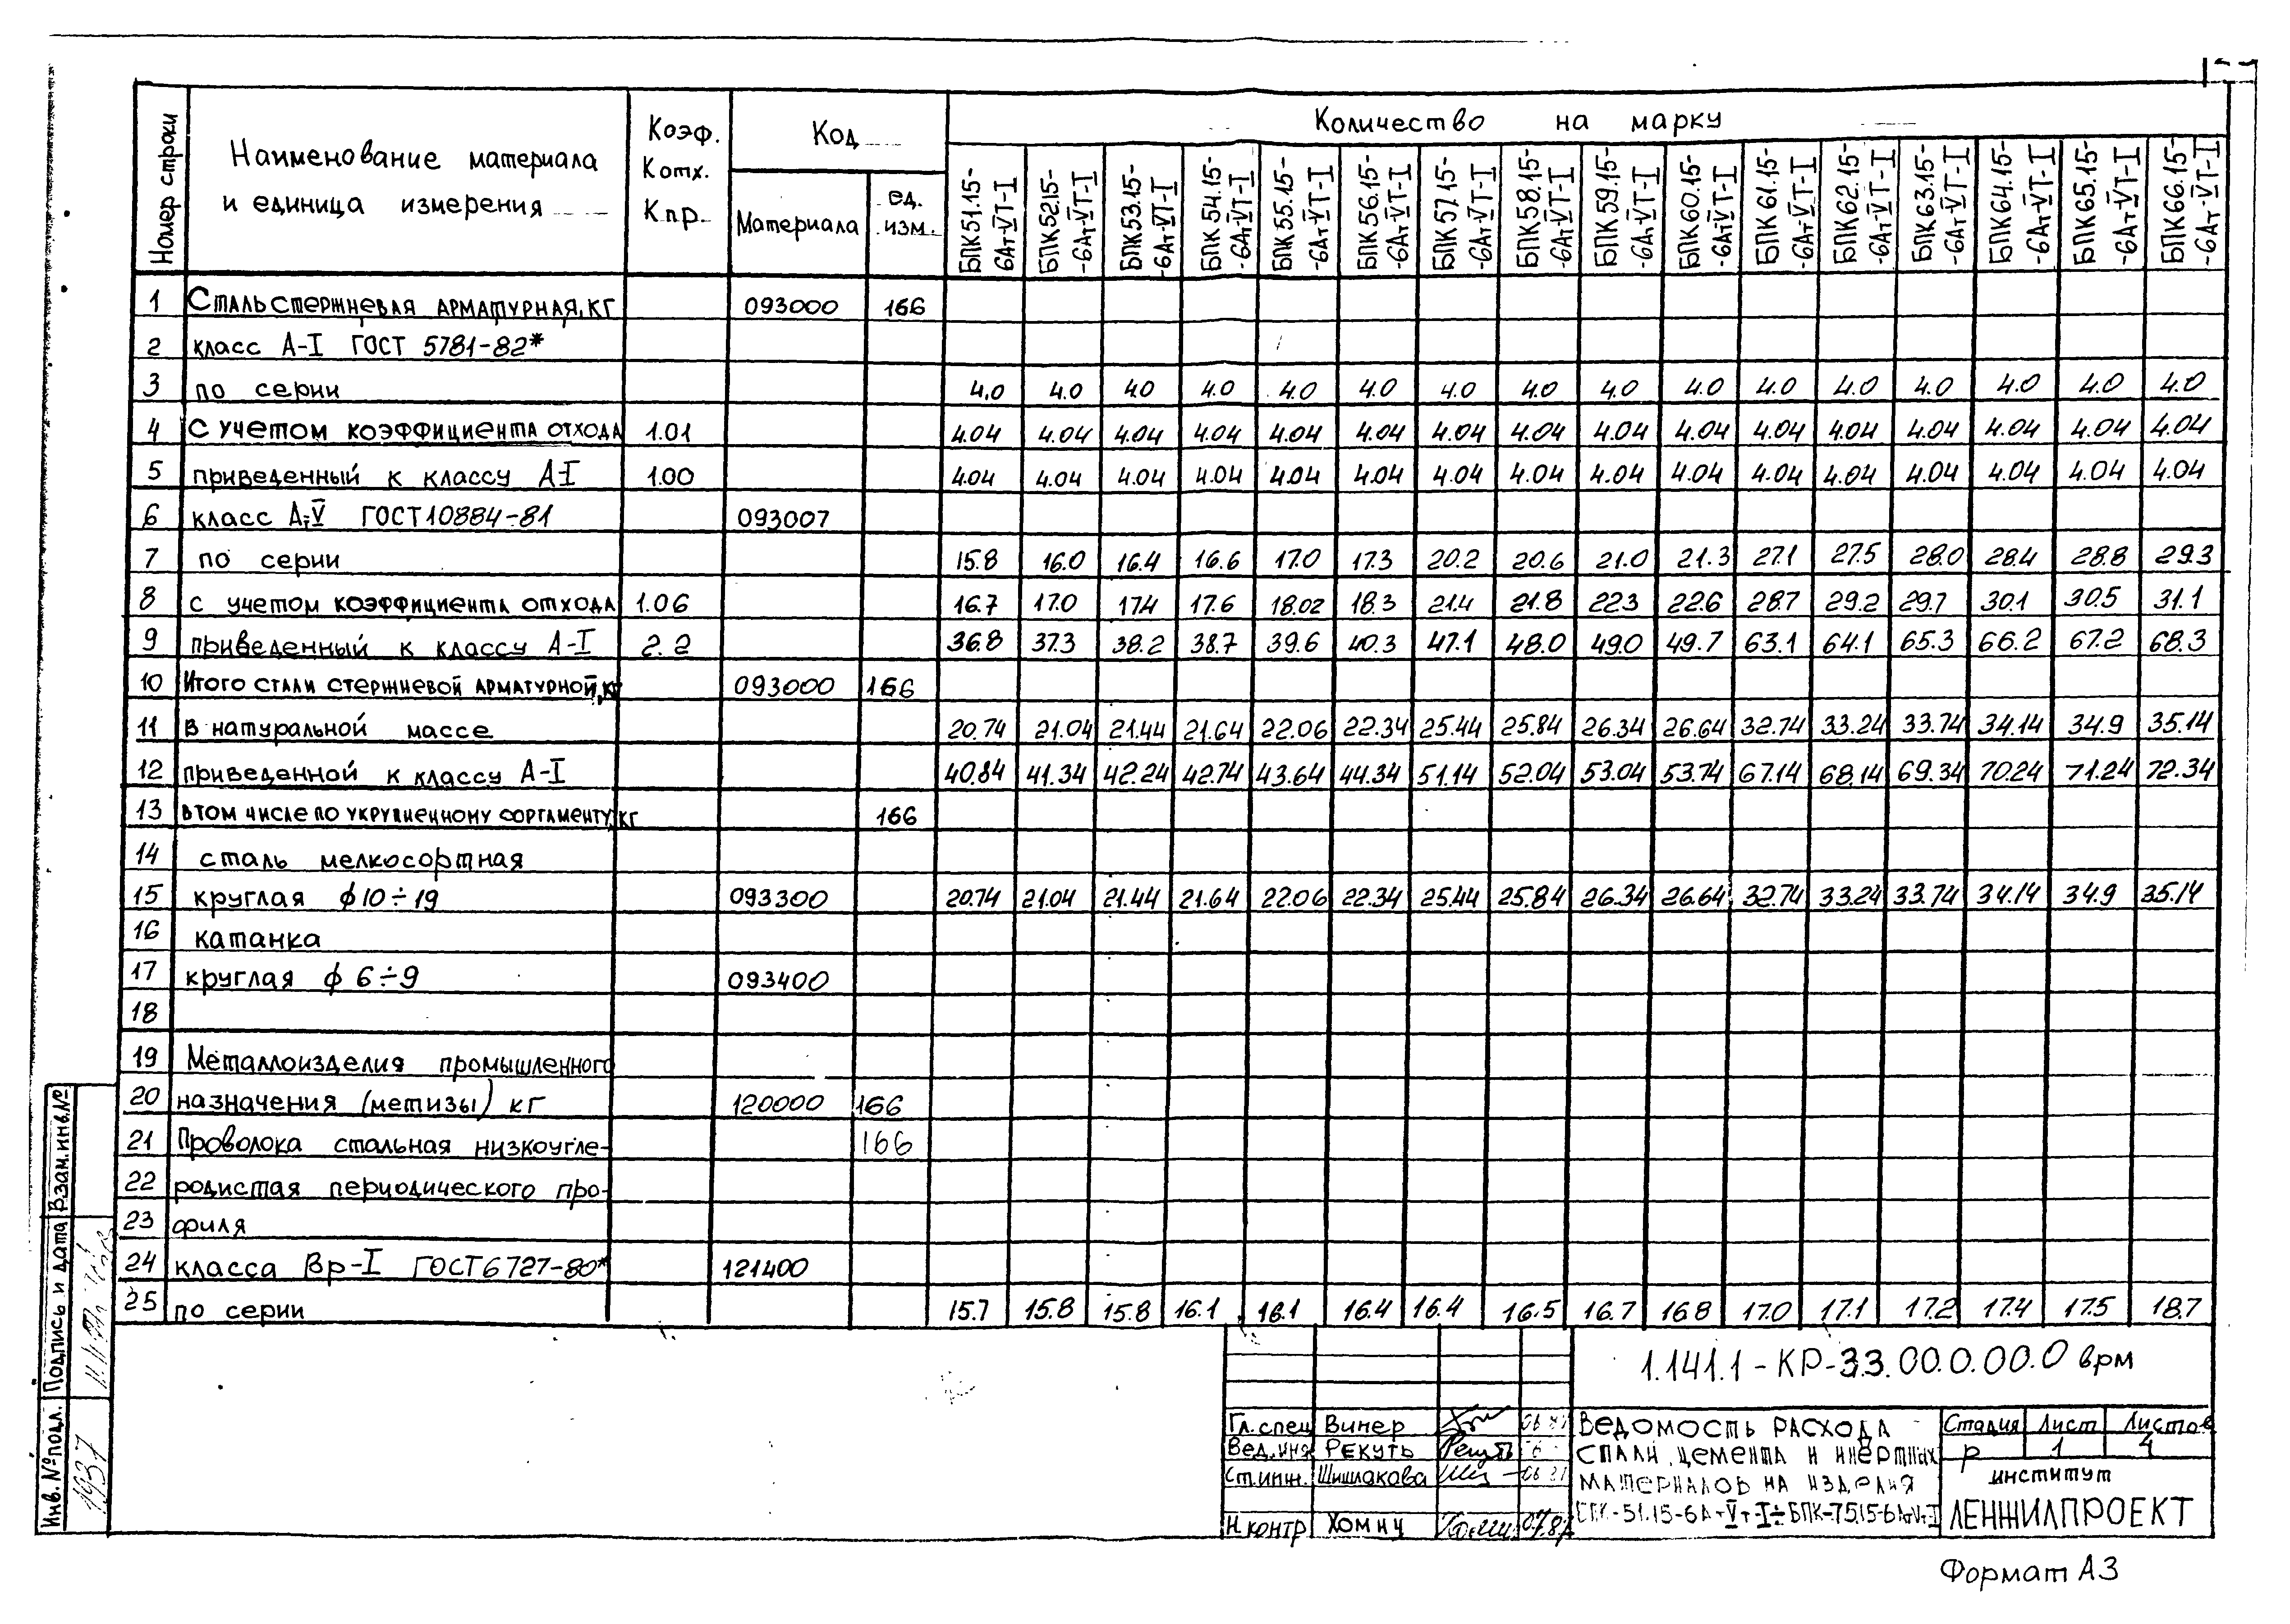 Номер строки
Наименование материала
и единица измерения
Коэф.
Котх.
Кпр.
Код
Материала
ед.
изм.
Количество на марку
БПК51.15-6Ат-VТ-I
БПК52.15-6Ат-VТ-I
БПК53.15-6Ат-VТ-I
БПК54.15-6Ат-VТ-I
БПК55.15-6Ат-VТ-I
БПК56.15-6Ат-VТ-I
БПК57.15-6Ат-VТ-I
БПК58.15-6Ат-VТ-I
БПК59.15-6Ат-VТ-I
БПК60.15-6Ат-VТ-I
БПК61.15-6Ат-VТ-I
БПК62.15-6Ат-VТ-I
БПК63.15-6Ат-VТ-I
БПК64.15-6Ат-VТ-I
БПК65.15-6Ат-VТ-I
БПК66.15-6Ат-VТ-I
1 Сталь стержневая арматурная, кг 093000 166
2 класс А-I ГОСТ 5781-82*
3 по серии 4.0 4.0 4.0 4.0 4.0 4.0 4.0 4.0 4.0 4.0 4.0 4.0 4.0 4.0 4.0 4.0
4 С учетом коэффициента отхода 1.01 4.04 4.04 4.04 4.04 4.04 4.04 4.04 4.04 4.04 4.04 4.04 4.04 4.04 4.04 4.04 4.04
5 приведенный к классу А-I 1.00 4.04 4.04 4.04 4.04 4.04 4.04 4.04 4.04 4.04 4.04 4.04 4.04 4.04 4.04 4.04 4.04
6 класс Ат-V ГОСТ10884-81 093007
7 по серии 15.8 16.0 16.4 16.6 17.0 17.3 20.2 20.6 21.0 21.3 27.1 27.5 28.0 28.4 28.8 29.3
8 с учетом коэффициента отхода 1.06 16.7 17.0 17.4 17.6 18.02 18.3 21.4 21.8 22.3 22.6 28.7 29.2 29.7 30.1 30.5 31.1
9 приведенный к классу А-I 2.2 36.8 37.3 38.2 38.7 39.6 40.3 47.1 48.0 49.0 49.7 63.1 64.1 65.3 66.2 67.2 68.3
10 Итого стали стержневой арматурной, кг 093000 166
11 в натуральной массе 20.74 21.04 21.44 21.64 22.06 22.34 25.44 25.84 26.34 26.64 32.74 33.24 33.74 34.14 34.9 35.14
12 приведенной к классу А-I 40.84 41.34 42.24 42.74 43.64 44.34 51.14 52.04 53.04 53.74 67.14 68.14 69.34 70.24 71.24 72.34
13 в том числе по укрупненному сортаменту, кг 166
14 сталь мелкосортная
15 круглая ϕ10÷19 093300 20.74 21.04 21.44 21.64 22.06 22.34 25.44 25.84 26.34 26.64 32.74 33.24 33.74 34.14 34.9 35.14
16 катанка
17 круглая ϕ 6÷9 093400
18
19 Металлоизделия промышленного
20 назначения (метизы) кг 120000 166
21 Проволока стальная низкоугле- 166
22 родистая периодического про-
23 филя
24 класса Вр-I ГОСТ6727-80* 121400
25 по серии 15.7 15.8 15.8 16.1 16.1 16.4 16.4 16.5 16.7 16.8 17.0 17.1 17.2 17.4 17.5 18.7
Взам. инв.№
Подпись и дата
Инв. №подл.
1937
1.141.1-КР-33.00.0.00.0 врм
Гл.спец Винер
Вед.инж Рекуть
Ст.инж. Шишлакова
Н.контр Хомич
Ведомость расхода
стали, цемента и инертных
материалов на изделия
БПК-51.15-6Ат-Vт-I÷БПК-75.15-6АтVт-I
Стадия Лист Листов
Р 1 4
институт
ЛЕНЖИЛПРОЕКТ
Формат А3